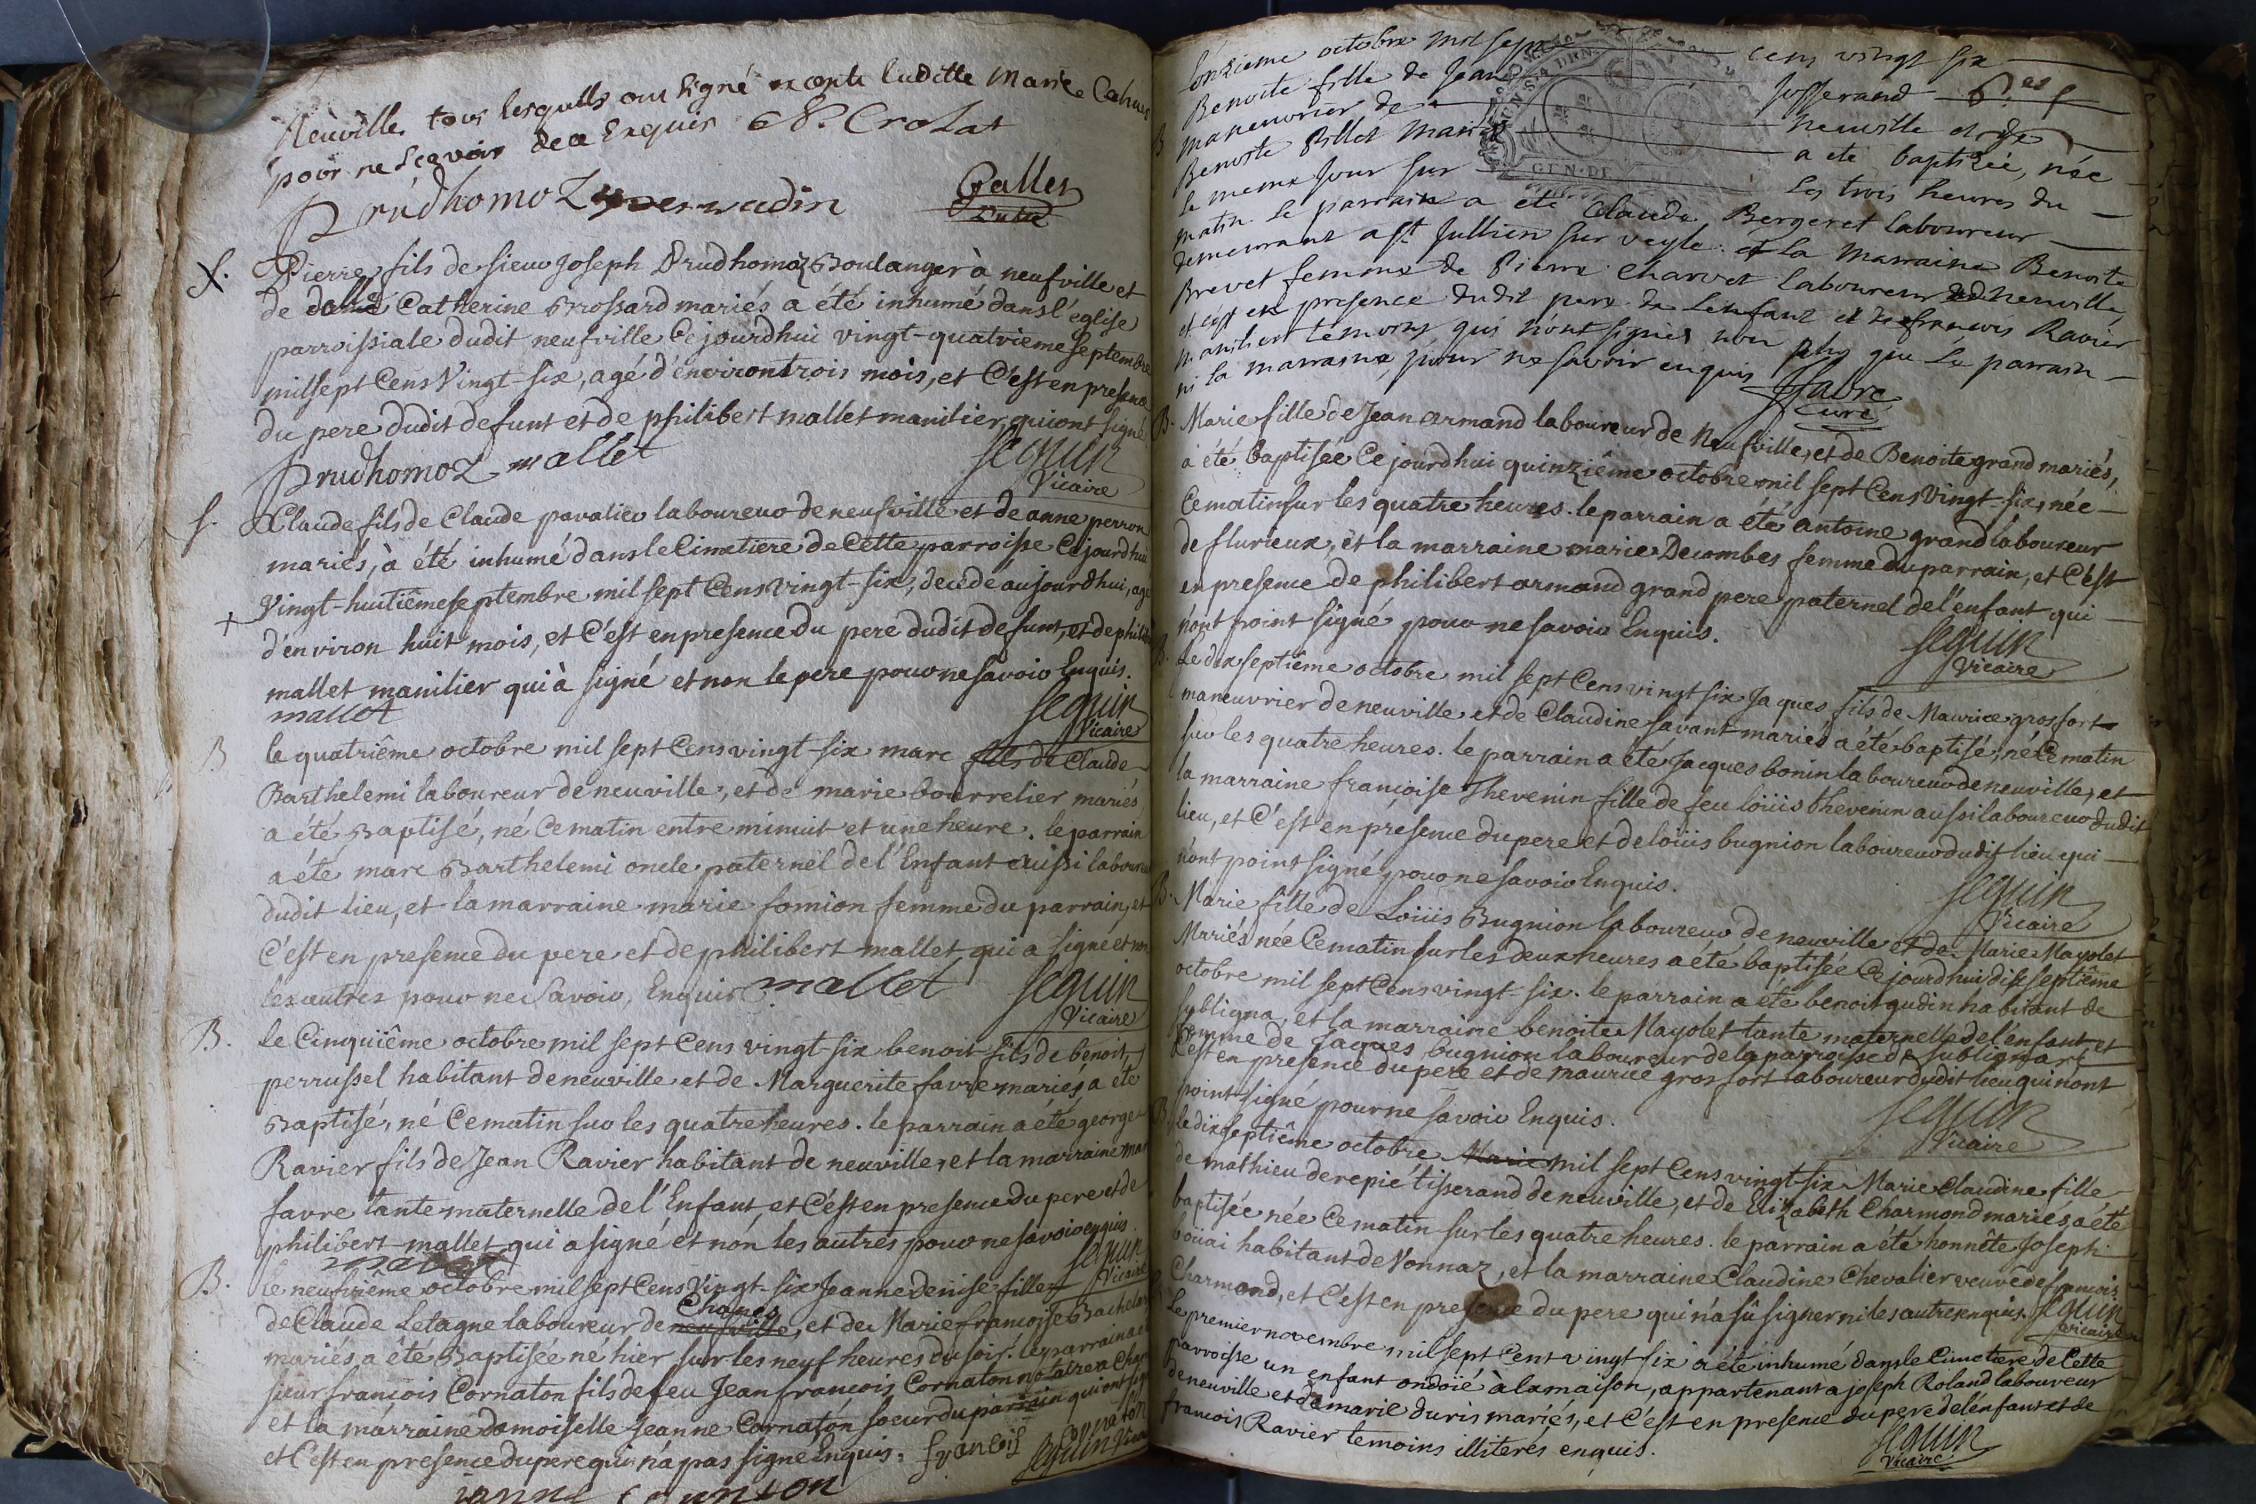 Neuville, tous lesquells ont signé excepté laditte Marie
pour ne sçavoir de ce Enquis
Prudhomoz
Galley
Curé
S.
Pierre, fils de sieur Joseph Prudhomoz Boulanger à neufville et
de dame Catherine Brossard mariés a été inhumé dans l'église
parroissiale dudit neufville ce jourdhui vingt-quatrieme septembre
mil sept Cens Vingt-six, agé d'énviron trois mois, et C'est en presence
du pere dudit defunt et de philibert mallet manilier, qui ont signé
Prudhomoz mallet
seguin
Vicaire
S.
Claude fils de Claude pavalier laboureur de neufville et de anne perron
mariés, à été inhumé dans le Cimetiere de Cette parroisse Cejourdhui
Vingt-huitiême septembre mil sept Cens vingt-six, decedé aujourdhui, agé
d'énviron huit mois, et C'est en presence Du pere dudit defunt, et de philib
mallet manilier qui à signé et non le pere pour ne savoir Enquis.
mallet
seguin
Vicaire
B
le quatriême octobre mil sept Cens vingt-six marc fils de Claude
Barthelemi laboureur de neuville, et de marie bourrelier mariés
a été Baptisé, né Ce matin entre minuit et une heure. le parrain
a été marc Barthelemi oncle paternel de l'Enfant aussi laboureu
dudit lieu, et la marraine marie fornion femme du parrain, et
C'est en presence du pere et de philibert mallet qui a signé et non
les autres pour ne savoir, Enquis mallet
seguin
Vicaire
B.
le Cinquiême octobre mil sept Cens vingt-six benoit fils de benoit
perrussel habitant de neuville et de Marguerite favre mariés, a été
Baptisé, né Ce matin sur les quatre heures. le parrain a été george
Ravier fils de Jean Ravier habitant de neuville, et la marraine mar
favre tante maternelle de l'Enfant, et C'est en presence du pere et de
philibert mallet qui a signé et non les autres pour ne savoir enquis.
mallet
seguin
Vicaire
B.
le neufviême octobre mil sept Cens Vingt-six Jeanne Denise fille
Chanes
de Claude Letagne laboureur de neufville, et de Marie francoise Bachelar
mariés, a été Baptisée né hier sur les neuf heures du soir. le parrain a e
sieur francois Cornaton fils de feu Jean francois Cornaton notaire a Chan
et la marraine damoiselle Jeanne Cornaton soeur du parrain qui ont sig
et C'est en presence du pere qui n'a pas signé Enquis. francois Cornaton
seguin Vicai
B
L'onzieme octobre mil sept cens vingt six
Benoite fille de Jean Josserand
maneuvrier de neuville et de
Benoite Billet mariés a eté baptizée, née
le meme jour sur les trois heures du
matin. Le parrain a été Claude Bergeret laboureur
demeurant a st Jullien sur veyle. et la marraine Benoite
Brevet femme de Pierre Charvet laboureur de neuville
et c'est en presence dudit pere de L'enfant et de francois Ravier
manilier témoins qui n'ont signés non plus que Le parrain
ni la marraine, pour ne savoir enquis
favre
curé
B.
Marie fille de Jean armand laboureur de Neufville, et de Benoite grand mariés,
a été Baptisée Ce jourdhui quinziême octobre mil sept Cens Vingt-six, née
Ce matin sur les quatre heures. le parrain a été antoine grand laboureur
de flurieux, et la marraine marie Decombes femme du parrain, et C'est
en presence de philibert armand grand pere paternel de l'enfant qui
n'ont point signé pour ne savoir Enquis.
seguin
Vicaire
B.
Le dix septiême octobre mil sept Cens vingt six Jaques fils de Maurice grosfort
maneuvrier de neuville et de Claudine savant mariés a été baptisé, né Ce matin
sur les quatre heures. le parrain a été Jacques bonin laboureur de neuville, et
la marraine françoise Thevenin fille de feu loüis thevenin aussi laboureur dudit
lieu, et C'est en présence du pere et de loüis bugnion laboureur dudit lieu qui
n'ont point signé, pour ne savoir Enquis.
seguin
Vicaire
B.
Marie fille de Loüis Bugnion laboureur de neuville et de Marie Mayolet
Mariés née Ce matin sur les deux heures a été baptisée Ce jourdhui dix septiême
octobre mil sept Cens vingt-six. le parrain a été benoit gudin habitant de
sulligna, et la marraine benoite Mayolet tante maternelle de l'enfant et
femme de Jaques bugnion laboureur de la parroisse de sulligna et
C'est en presence du pere et de maurice grosfort laboureur dudit lieu qui n'ont
point signé pour ne savoir Enquis.
seguin
Vicaire
B
le dix septiême octobre Marie mil sept Cens vingt-six Marie Claudine fille
de mathieu derepié tisserand de neuville, et de Elizabeth Charmond mariés, a été
baptisée née Ce matin sur les quatre heures. le parrain a été honnête Joseph
bouai habitant de Vonnaz, et la marraine Claudine Chevalier veuve de francois
Charmond, et C'est en presence du pere qui n'a sû signer ni les autres enquis.
seguin
vicaire
Le premier novembre mil sept Cent vingt six a été inhumé dans le Cimetiere de Cette
parroisse un enfant ondoïé à la maison, appartenant a joseph Roland laboureur
de neuville et de marie duris mariés, et C'est en presence du pere de l'énfant et de
francois Ravier temoins illiterés enquis.
seguin
Vicaire